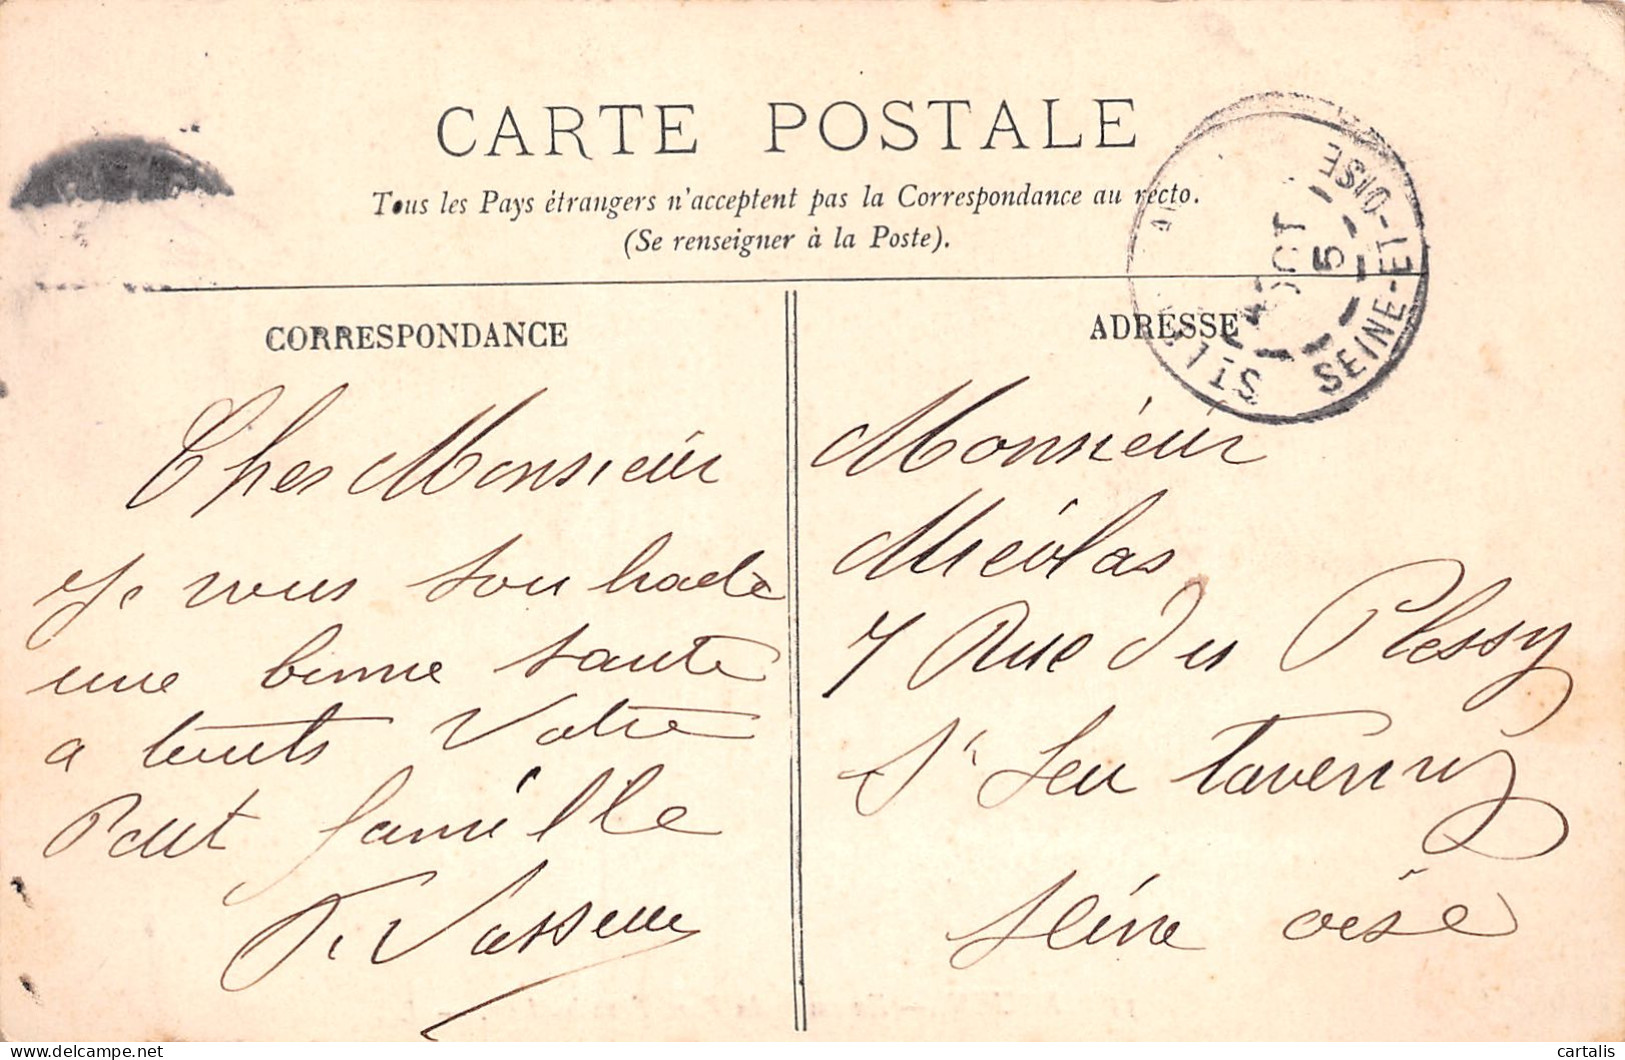 CARTE POSTALE
Tous les Pays étrangers n'acceptent pas la Correspondance au recto.
(Se renseigner à la Poste).
CORRESPONDANCE
Cher Monsieur
Je vous souhade
une bonne santé
a touts Votre
Petit famille
Vasseur
ADRESSE
Monsieur
Nicolas
7 Rue du Plessy
St Leu Taverny
Seine oise
SEINE-ET-OISE
OCT
5
delcampe.net
cartalis